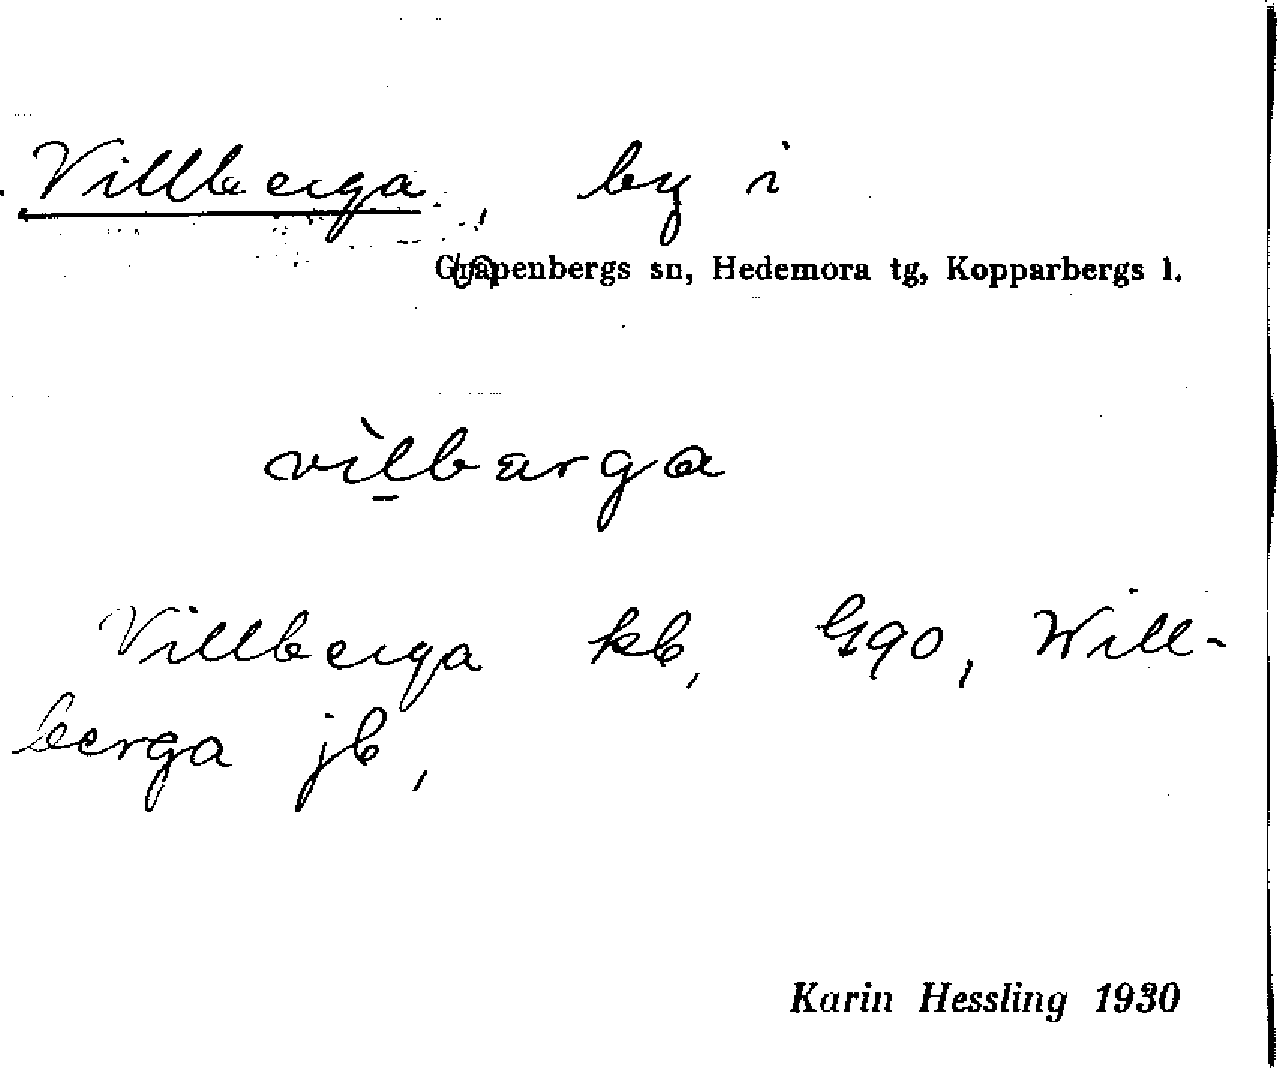 Villberga, by i
Grapenbergs sn, Hedemora tg, Kopparbergs l.
vìlbarga
Villberga kb, Ggo, Will-
berga jb,
Karin Hessling 1930